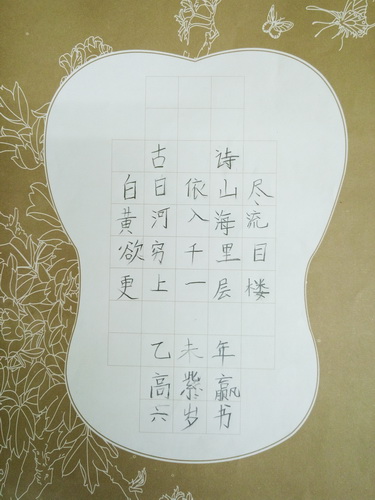 古诗
白日依山尽、
黄河入海流
欲穷千里目
更上一层楼
乙未年
高紫赢
六岁书